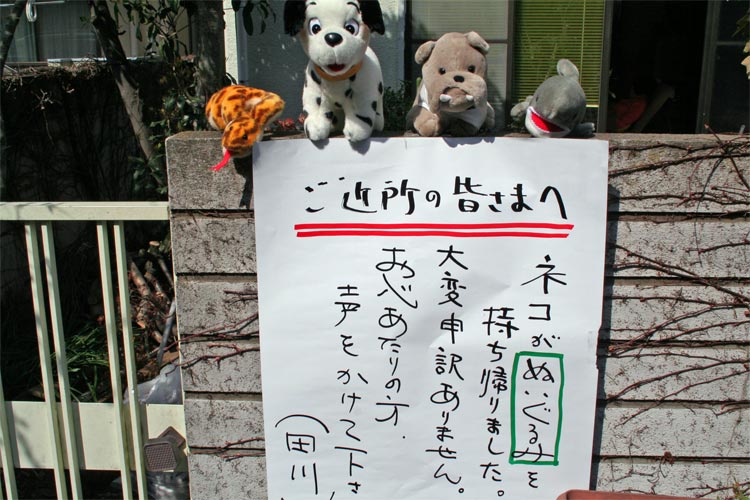 ご近所の皆さまへ
ネコがぬいぐるみを
持ち帰りました。
大変申訳ありません。
お心あたりの方、
声をかけて下さ
(田川